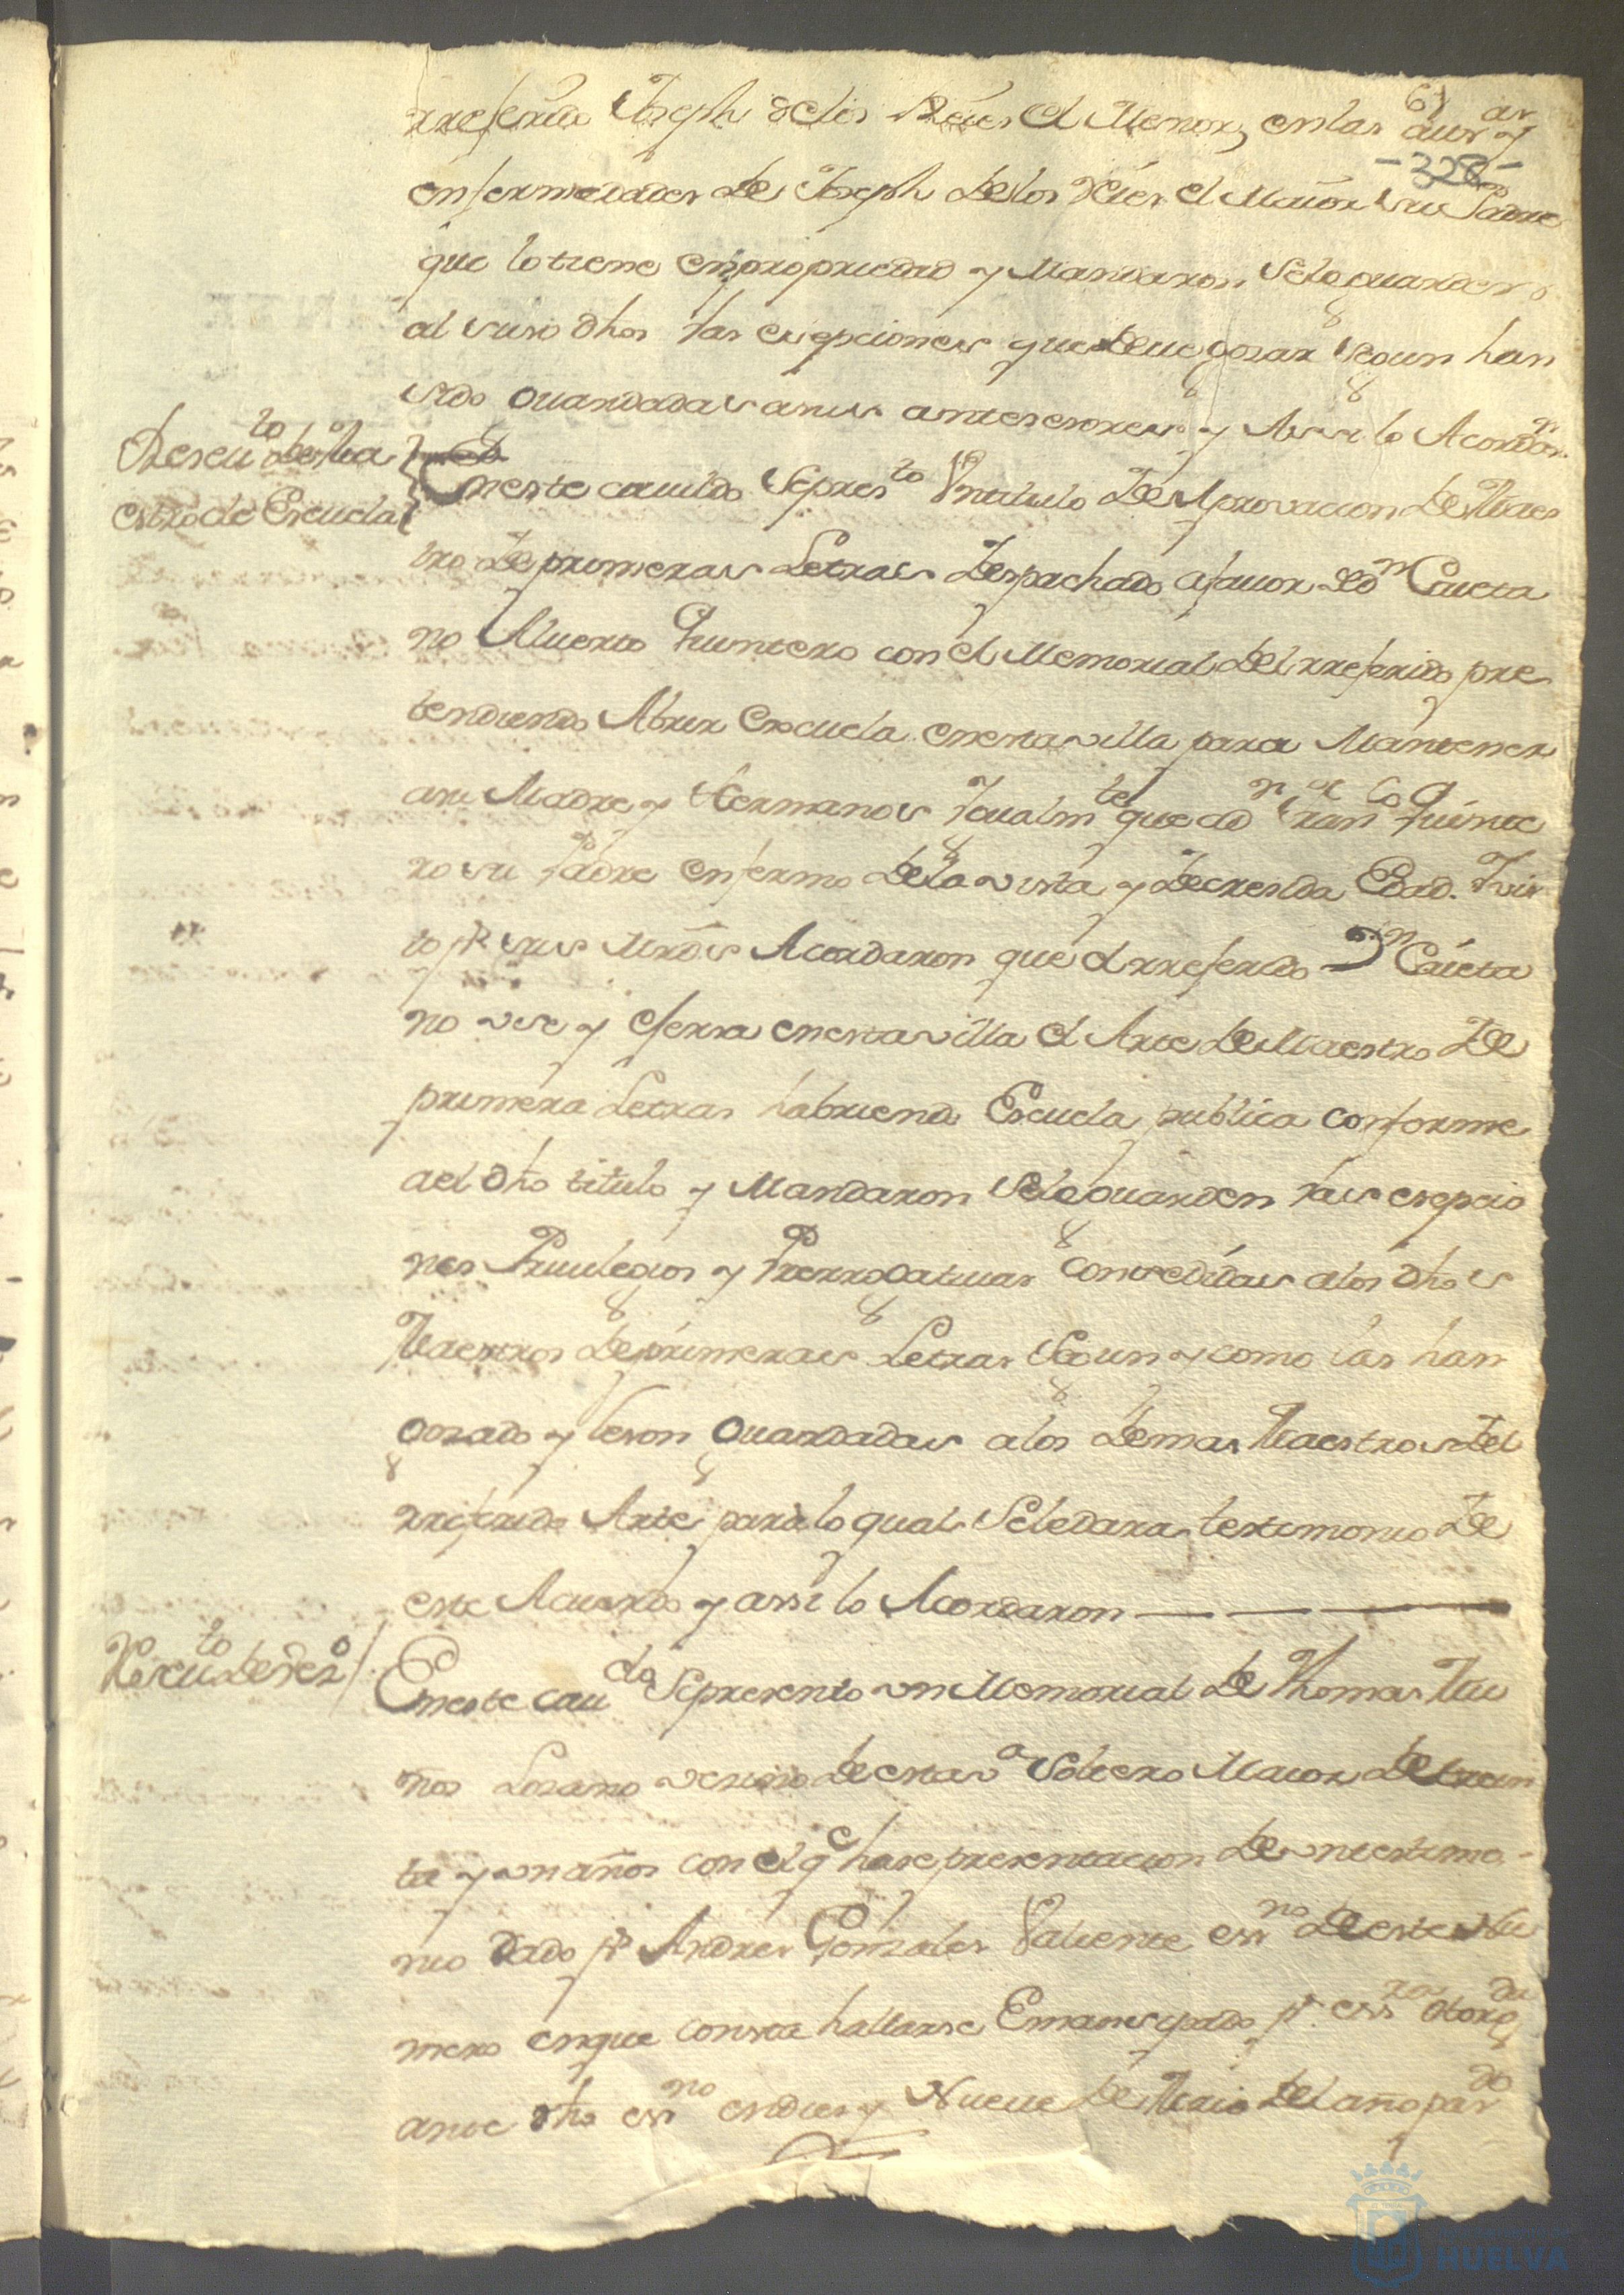 61
-328-
rreferido Joseph de los Reies el Menor, en las aus.as y
enfermedades de Joseph de los Reies el Maior su Padre
que lo tiene en propriedad y Mandaron se le guarden
al suso dho las esepciones que deue gosar segun han
sido guardadas a sus antesesores y Assi lo Acordaron
Reseuto. de Ma
estro de Escuela
En este cauildo se presto Un titulo de Aprovacion de Maes
tro de primeras Letras despachado a fauor de Dn Caieta
no Alverto Quintero con el Memorial del rreferido pre
tendiendo Abrir Escuela en esta villa para Mantener
a su Madre y Hermanos Igualmte que a dn Franco Quinte
ro su Padre enfermo de la vista y de cresida Edad. Y vis
to pr sus Mrds Acordaron que el rreferido Dn Caieta
no vse y ejersa en esta villa el Arte de Maestro de
primera Letras habriendo Escuela publica conforme
a el dho titulo y Mandaron se le guarden las esepcio
nes Priuilegios y Prerrogatiuas consedidas a los dhos
Maestros de primeras Letras segun y como las han
gozado y le son guardadas a los demas Maestros del
rreferido Arte para lo qual se le dara testimonio de
este Acuerdo y assi lo Acordaron
Reseuto de vezo
En este caudo se presento vn Memorial de Thomas Mu
ños Lozano vesino de esta va soltero Maior de trein
ta y vn años con el qe hase presentacion de vn testimo-
nio dado pr Andres Gonzales Valiente essno de este Nu
mero en que consta hallarse Emansipado pr essra otorgda
ante dho essno en dies y Nueue de Maio del año pasdo
HUELVA